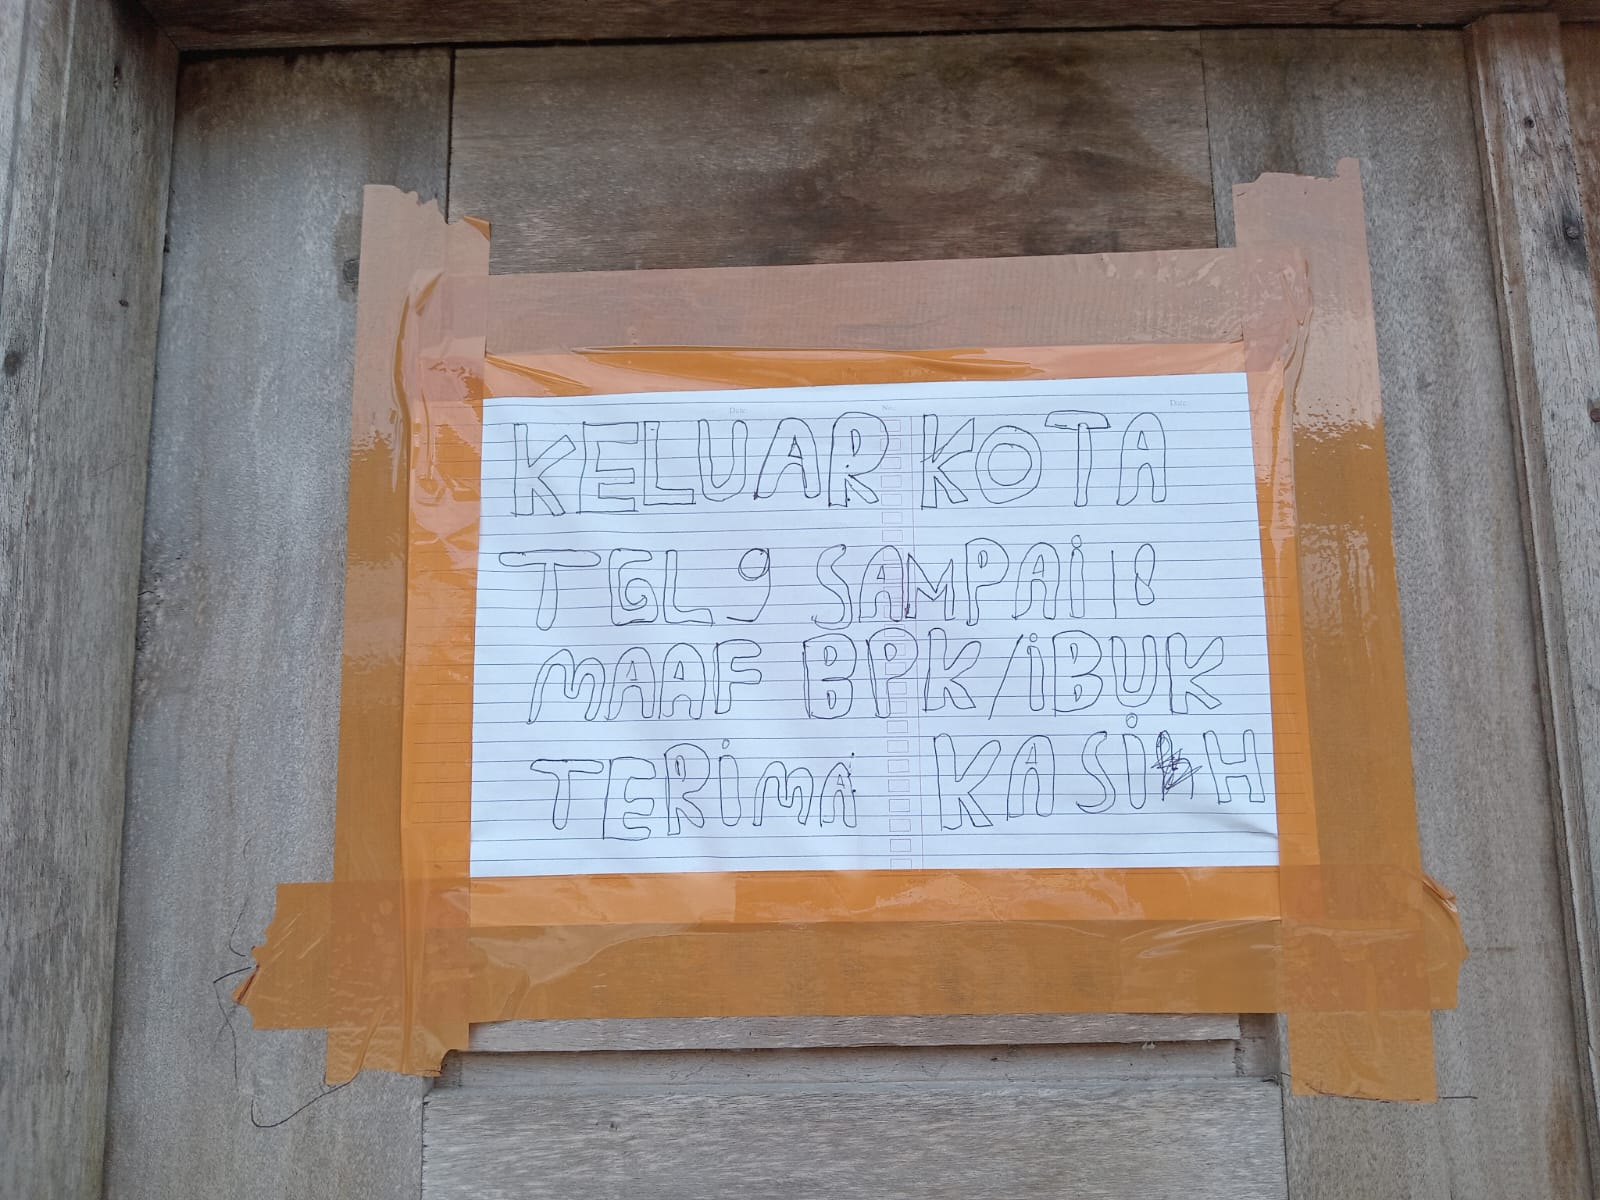 Date: No.: Date:
KELUAR KOTA
TGL 9 SAMPAi 18
MAAF BPK/iBUK
TERiMA KASiH